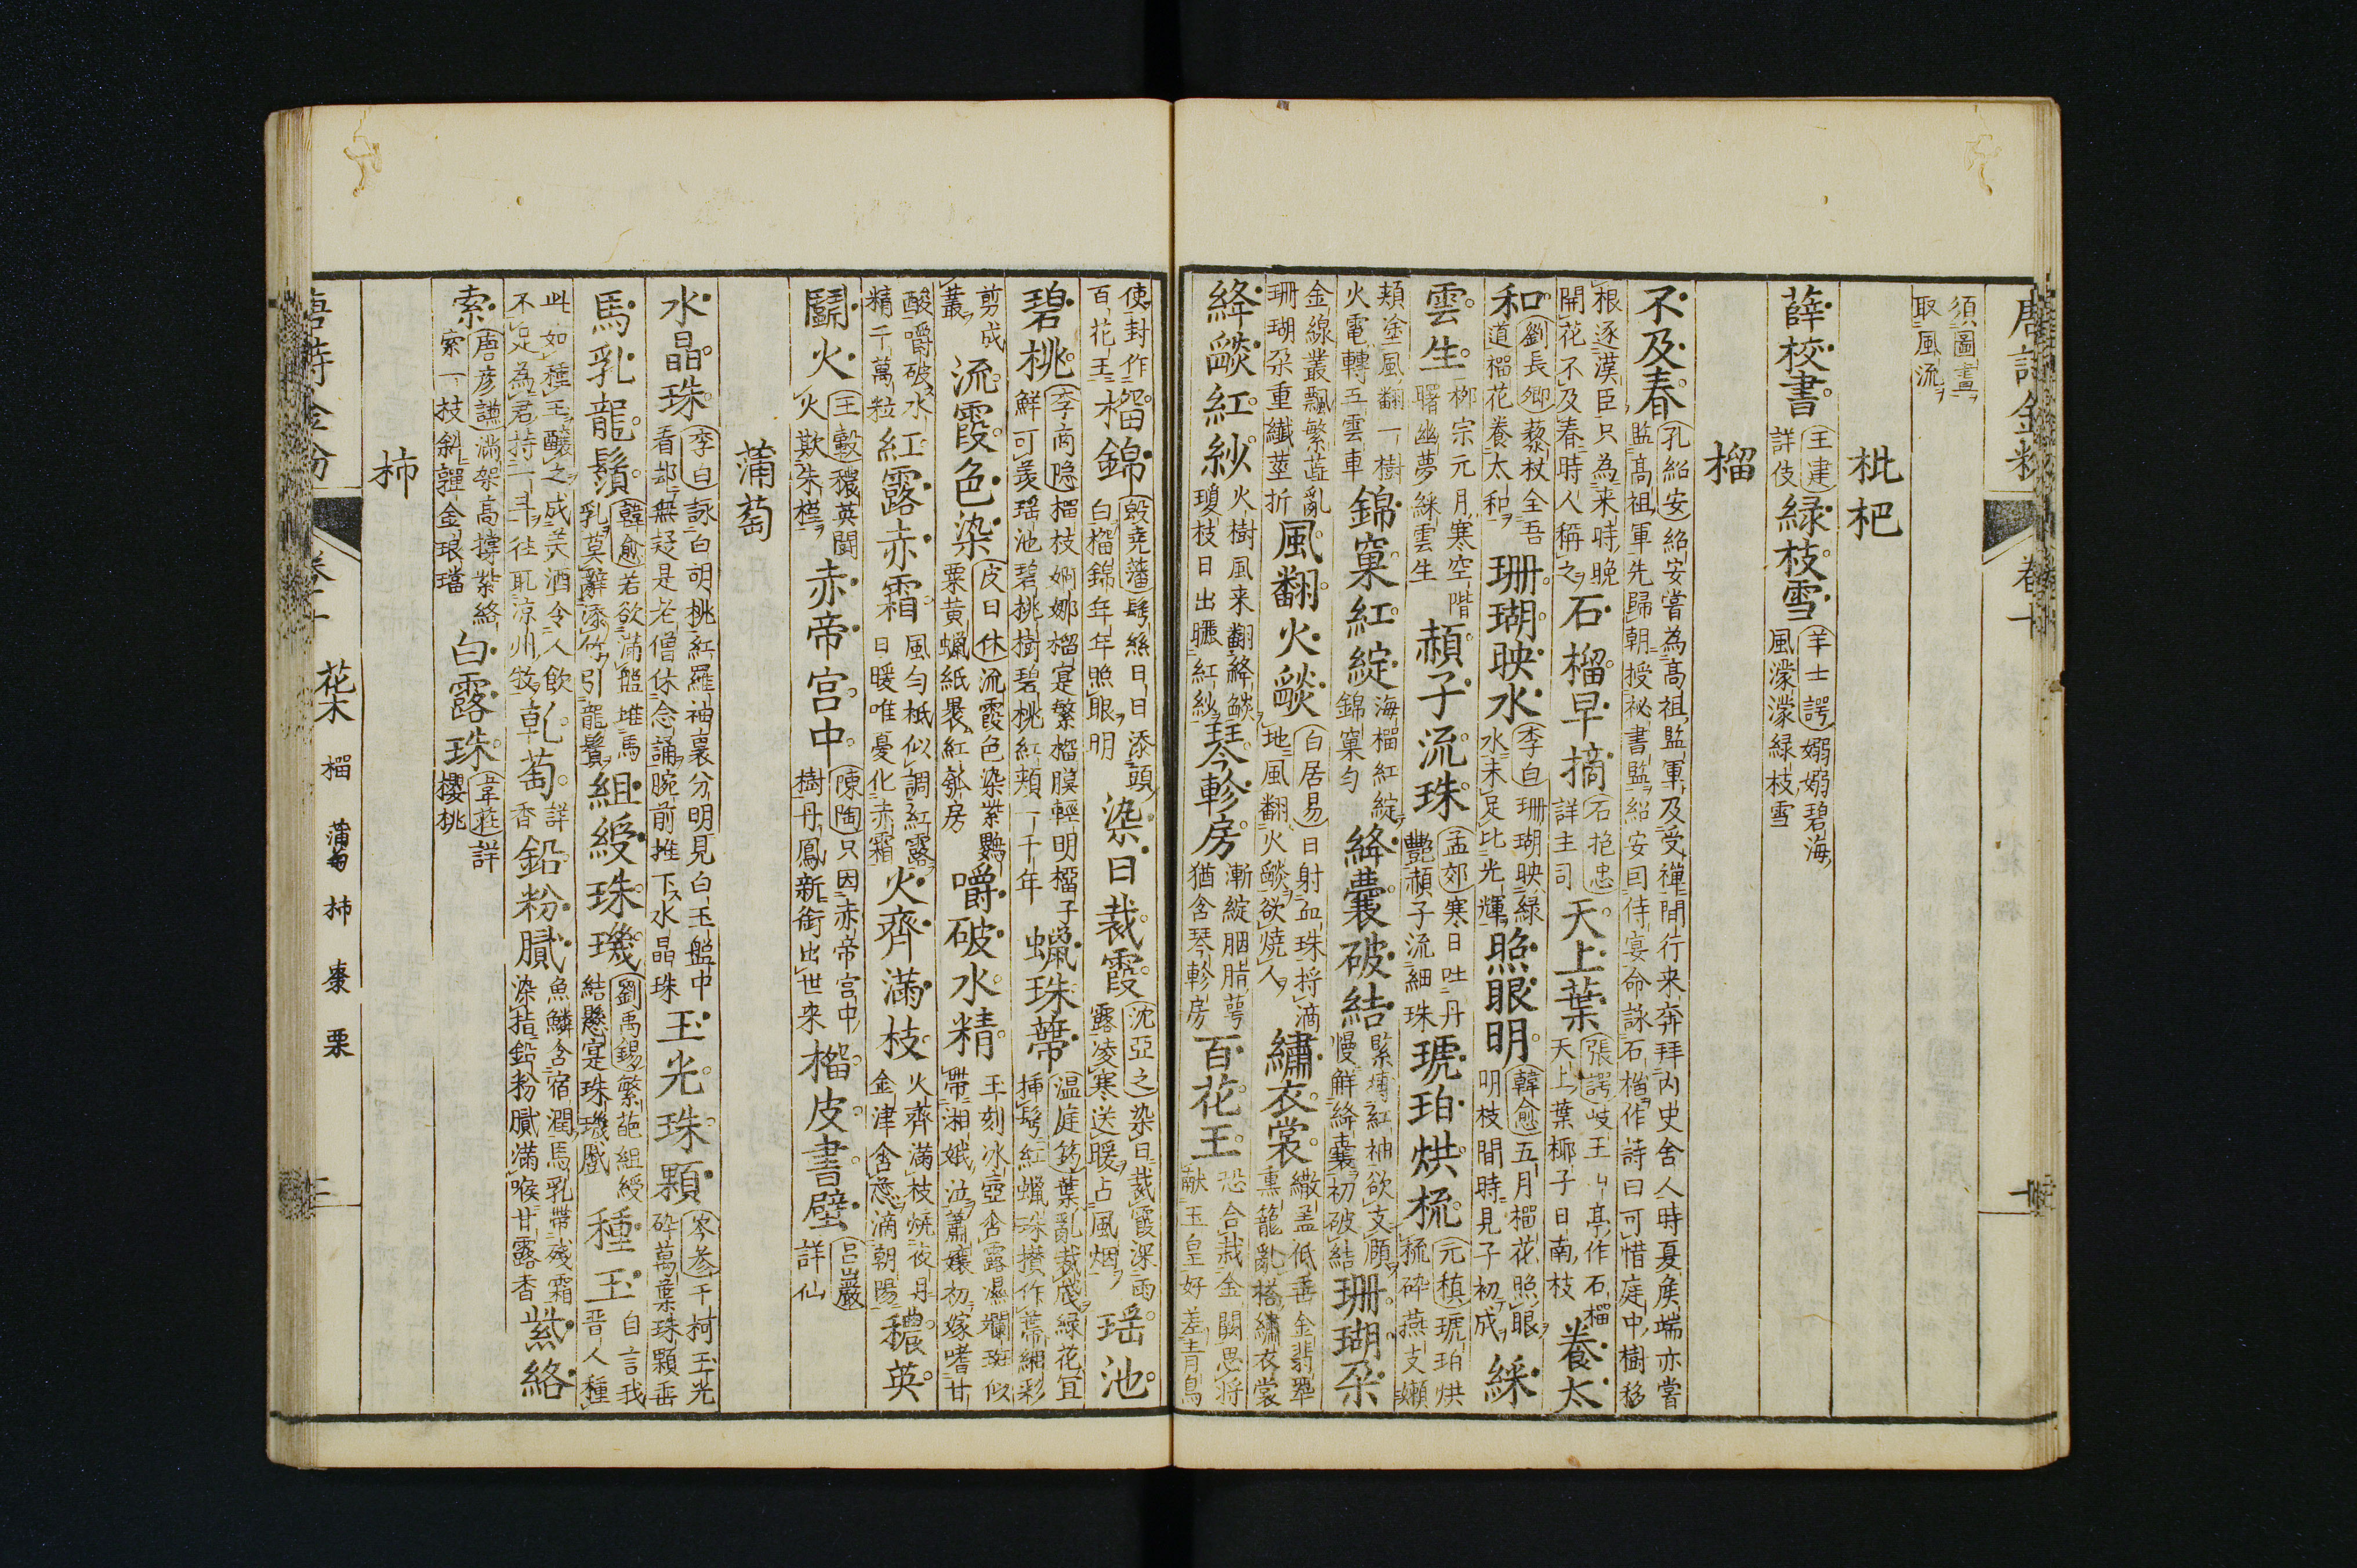 唐詩金粉 卷十
須圖畫取風流
枇杷
薛校書 王建 詳伎 緑枝雪 羊士諤 嫋嫋碧海風濛濛緑枝雪
榴
不及春 孔紹安 紹安嘗為高祖監軍及受禪間行来奔拜内史舍人時夏侯端亦嘗監高祖軍先歸朝授祕書監紹安因侍宴命詠石榴作詩曰可惜庭中樹移
根逐漢臣只為来時晩開花不及春時人稱之 石榴早摘 石抱忠 詳主司 天上葉 張諤 岐王山亭作石榴天上葉椰子日南枝 養太
和 劉長卿 藜杖全吾道榴花養太和 珊瑚映水 李白 珊瑚映緑水未足比光輝 照眼明 韓愈 五月榴花照眼明枝間時見子初成 綵
雲生 栁宗元 月寒空階曙幽夢綵雲生 頳子流珠 孟郊 寒日吐丹艷頳子流細珠 琥珀烘梳 元稹 琥珀烘梳碎燕支嬾
頬塗風翻一樹火電轉五雲車 錦窠紅綻 海榴紅綻錦窠匀 絳囊破結 緊塼紅袖欲支頤慢解絳囊初破結 珊瑚朶
金線叢飄繁蘂亂珊瑚朶重纎莖折 風翻火燄 白居易 日射血珠将滴地風翻火燄欲燒人 繡衣裳 繖盖低垂金翡翠熏籠亂搭繡衣裳
絳燄紅紗 火樹風来翻絳燄瓊枝日出曬紅紗 琴軫房 漸綻胭脂萼猶含琴軫房 百花王 恐合栽金闕思将献玉皇好差青鳥
使封作百花王 榴錦 殷堯藩 髩絲日日添頭白榴錦年年照眼明 染日裁霞 沈亞之 染日裁霞深雨露凌寒送暖占風烟 瑶池
碧桃 李商隐 榴枝婀娜榴寔繁榴膜輕明榴子鮮可羨瑶池碧桃樹碧桃紅頬一千年 蠟珠蔕 温庭筠 葉亂裁牋緑花宜挿髩紅蠟珠攅作蔕緗彩
剪成䕺 流霞色染 皮日休 流霞色染紫鸎粟黄蠟紙褁紅瓠房 嚼破水精 玉刻冰壺含露濕斕斑似帶湘娥泣蕭孃初嫁嗜甘
酸嚼破水精千萬粒 紅露赤霜 風匀柢似調紅露日暖唯憂化赤霜 火齊滿枝 火齊滿枝燒夜月金津含蘂滴朝陽 穠英
鬭火 王轂 穠英鬭火欺朱槿 赤帝宫中 陳陶 只因赤帝宫中樹丹鳳新銜出世来 榴皮書壁 吕巖 詳仙
蒲萄
水晶珠 李白 詠白胡桃紅羅袖裏分明見白玉盤中看却無疑是老僧休念誦腕前推下水晶珠 玉光珠顆 岑參 千柯玉光碎萬葉珠顆垂
馬乳龍鬚 韓愈 若欲滿盤堆馬乳莫辭添竹引龍鬚 組綬珠璣 劉禹錫 繁葩組綬結懸寔珠璣戲 種玉 自言我晋人種
此如種玉釀之成美酒令人飲不足為君持一斗往取凉州牧 乾萄 詳香 鉛粉膩 魚鱗含宿潤馬乳帯殘霜染指鉛粉膩滿喉甘露香 紫絡
索 唐彦謙 滿架高撐紫絡索一枝斜嚲金琅璫 白露珠 韋莊 詳櫻桃
柿
唐詩金粉 卷十 花木 榴 蒲萄 柿 棗 栗